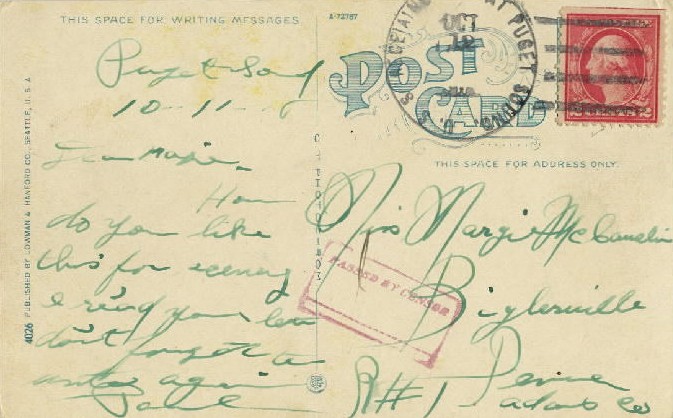 THIS SPACE FOR WRITING MESSAGES
A-72787
POST CARD
THIS SPACE FOR ADDRESS ONLY.
OCT
12
PUGET SOUND
U. S. S.
4026 PUBLISHED BY LOWMAN & HANFORD CO., SEATTLE, U. S. A.
Puget Sound
10-11-
Dear
How
do you like
this for scenery
I rec'd your letter
don't forget to
again
PASSED BY CENSOR
Miss Margie
Biglerville
R#1 Penna
Adams Co